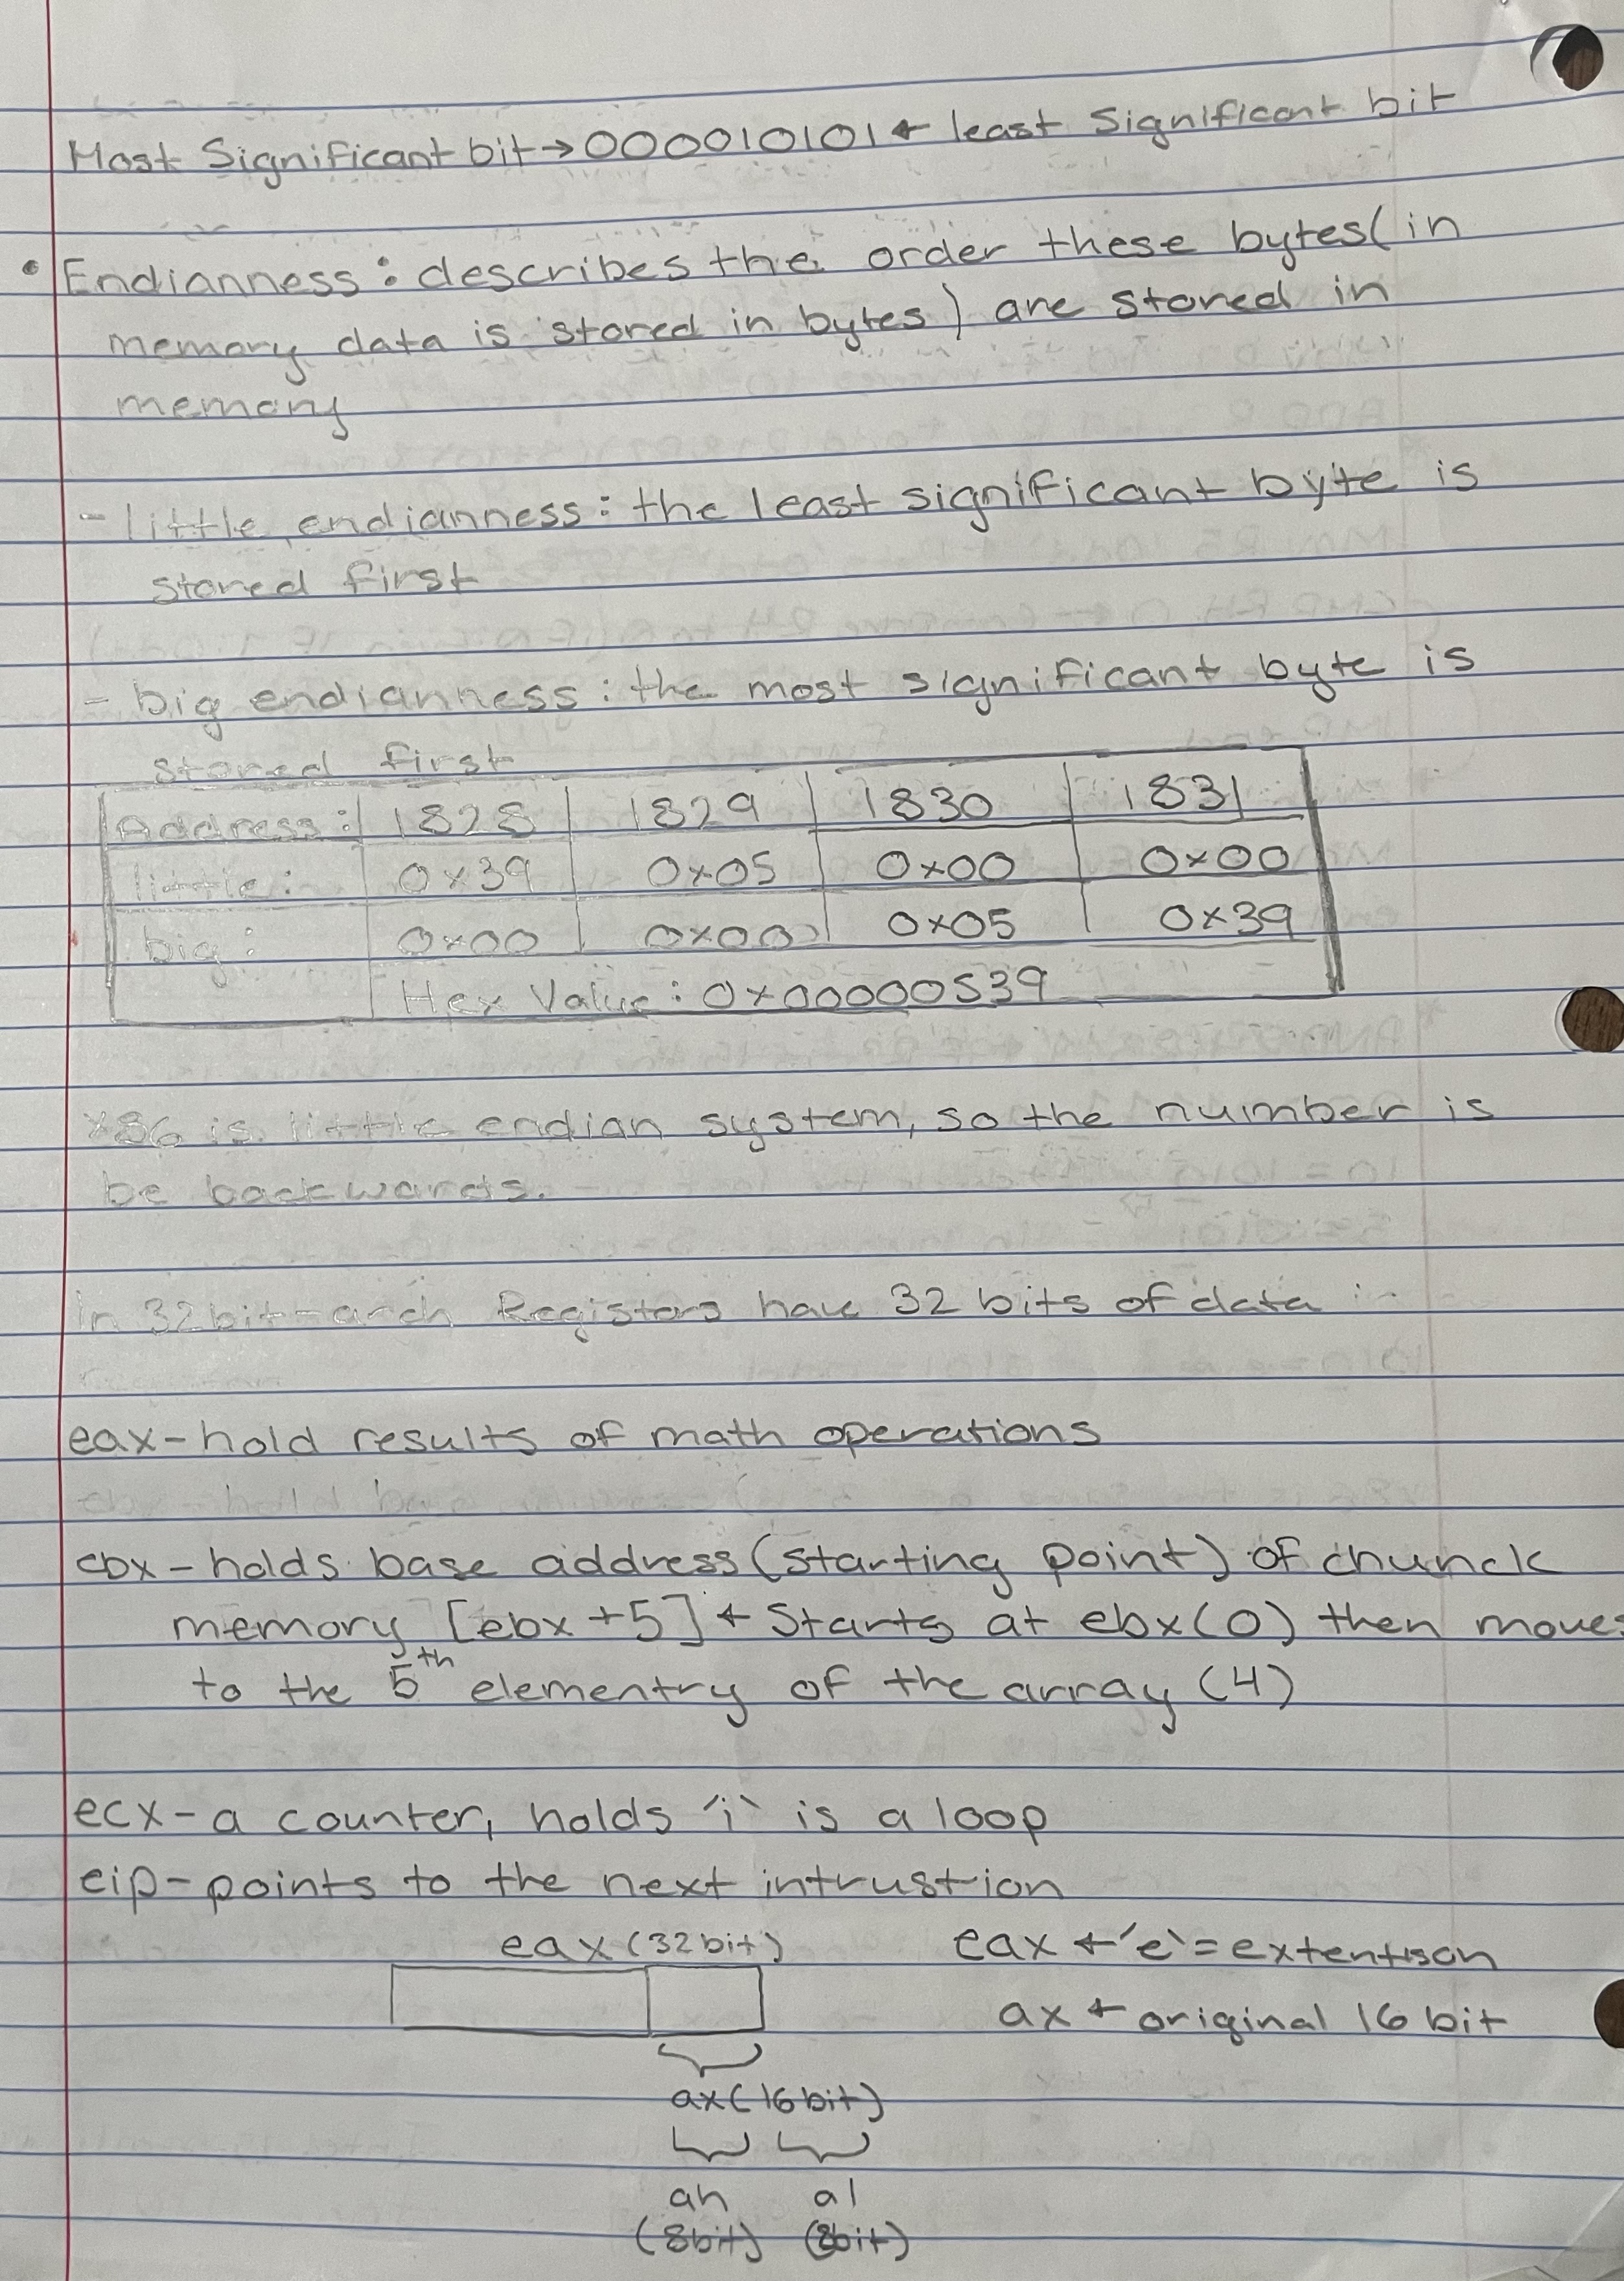 Most Significant bit → 000010101 ← least Significant bit
• Endianness: describes the order these bytes (in
memory data is stored in bytes) are stored in
memory
- little endianness: the least significant byte is
stored first
- big endianness: the most significant byte is
stored first
Address: 1828 1829 1830 1831
little: 0x39 0x05 0x00 0x00
big: 0x00 0x00 0x05 0x39
Hex Value: 0x00000539
x86 is little endian system, so the number is
be backwards.
In 32bit-arch Registors have 32 bits of data
eax - hold results of math operations
ebx - holds base address (starting point) of chunck
memory [ebx +5] ← Starts at ebx(0) then moves
to the 5th elementry of the array (4)
ecx - a counter, holds 'i' is a loop
eip - points to the next intrustion
eax (32bit) eax ← 'e' = extentison
ax ← original 16 bit
ax (16bit)
ah al
(8bit) (8bit)